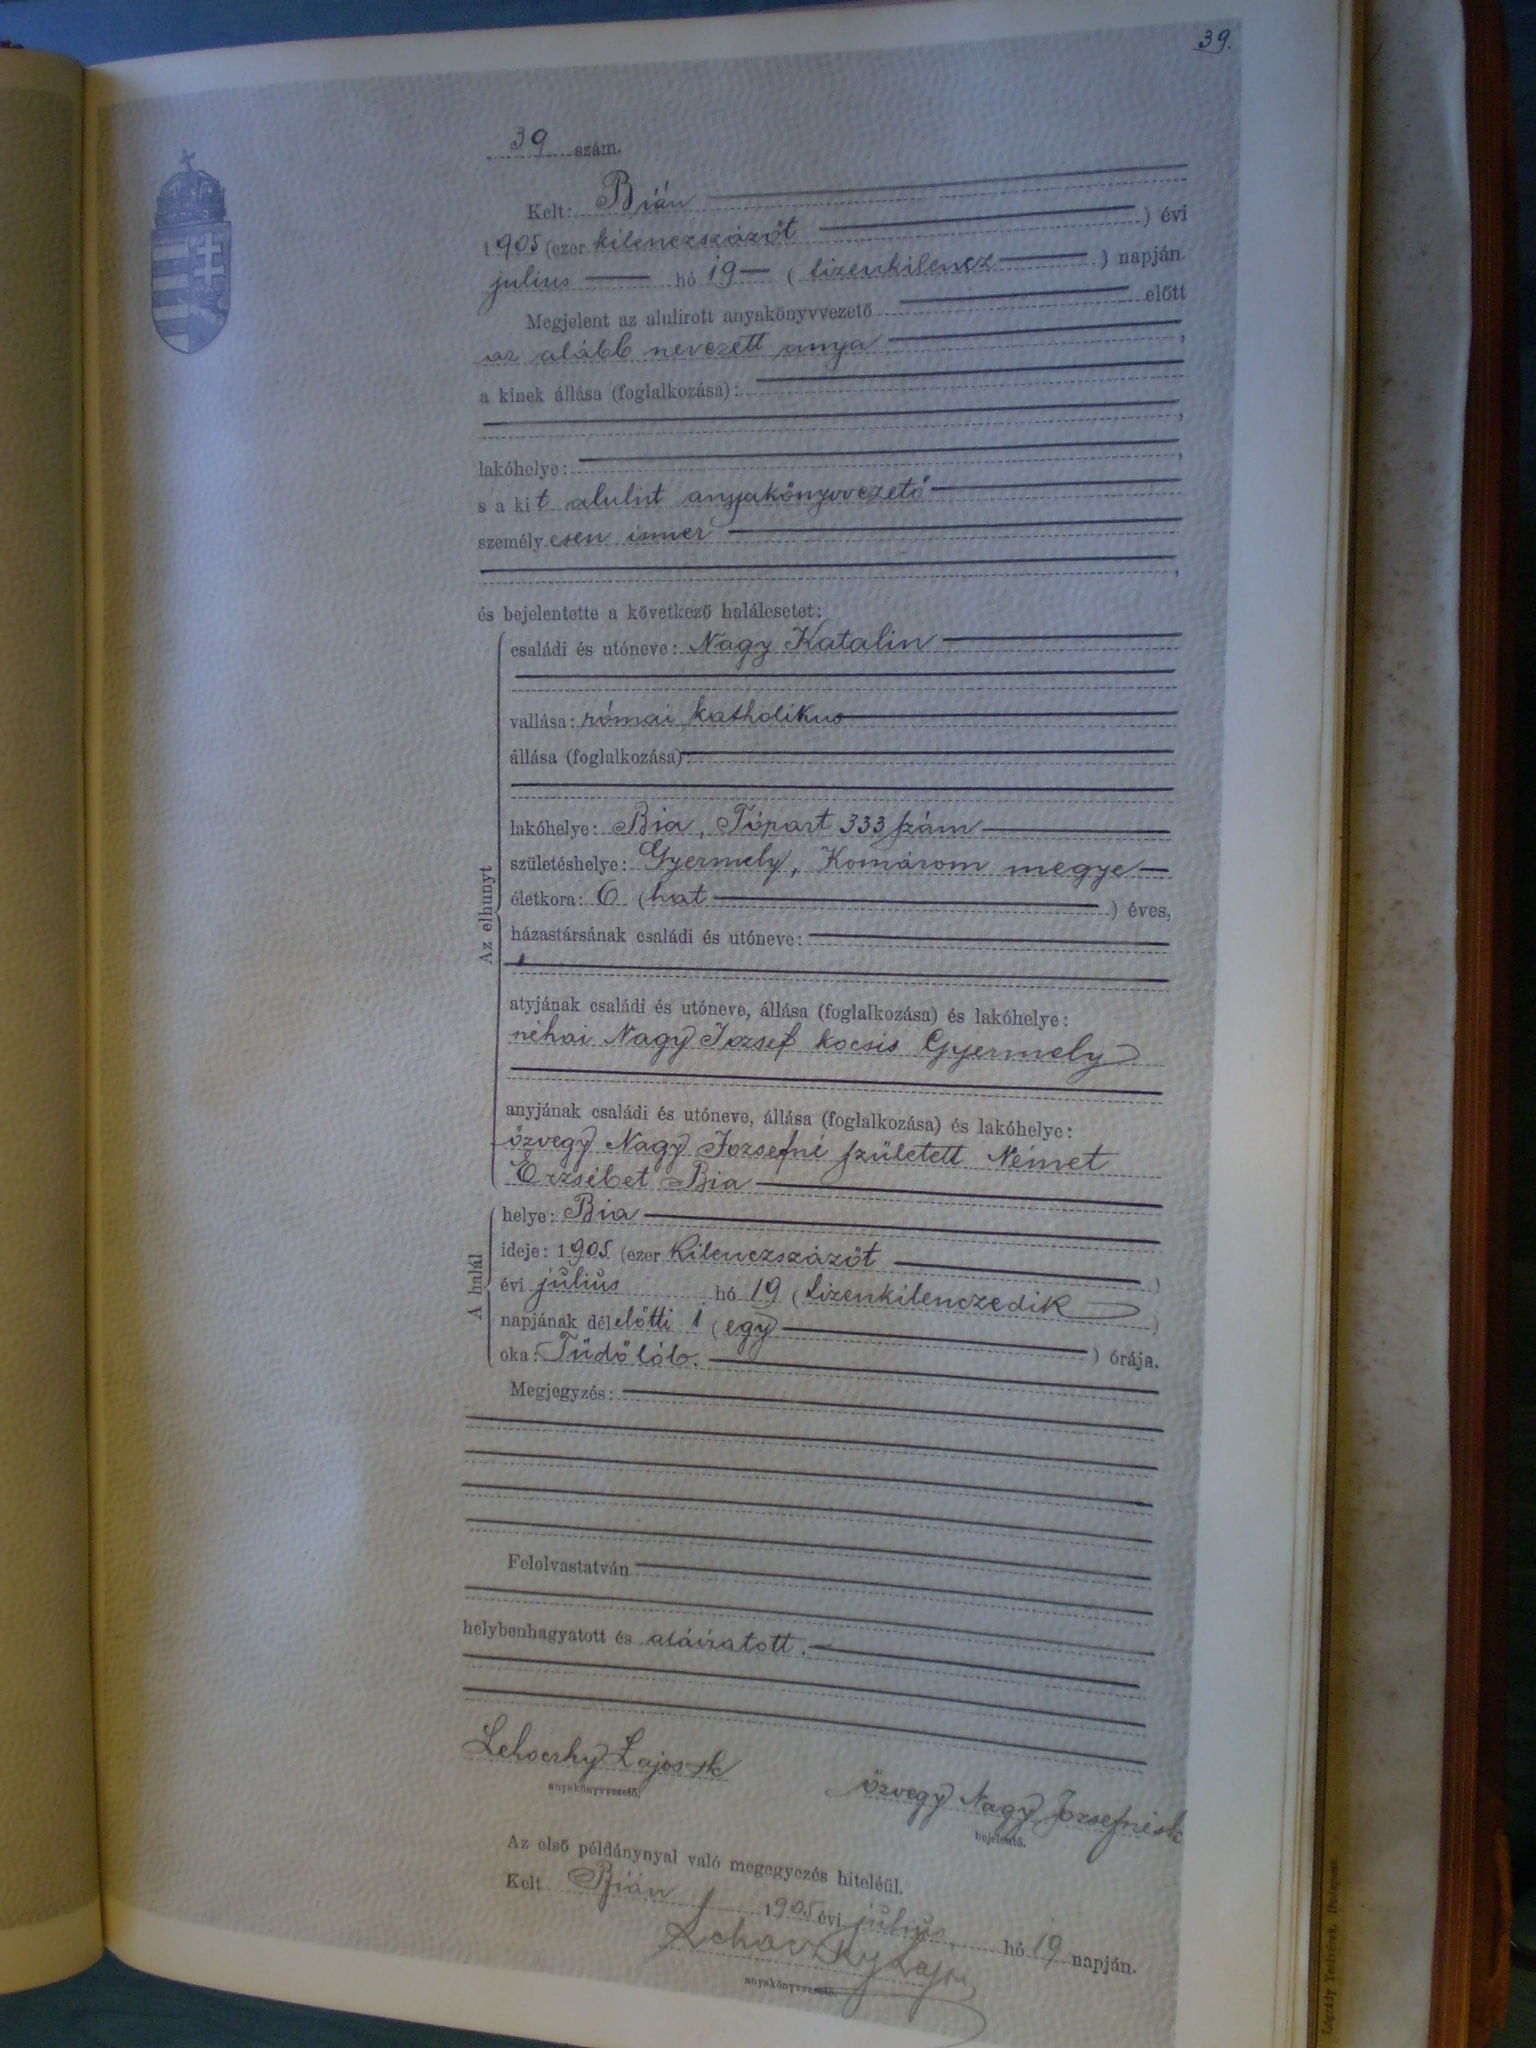 39.
39 szám.
Kelt: Bián
1905 (ezer kilenczszázöt ) évi
julius hó 19 ( tizenkilencz ) napján.
Megjelent az alulirott anyakönyvvezető előtt
az alább nevezett anya ,
a kinek állása (foglalkozása):
,
lakóhelye: ,
s a kit alulirt anyakönyvvezető
személyesen ismer
,
és bejelentette a következő halálesetet:
Az elhunyt
családi és utóneve: Nagy Katalin
vallása: római katholikus
állása (foglalkozása):
lakóhelye: Bia, Tópart 333 szám
születéshelye: Gyermely, Komárom megye
életkora: 6 (hat ) éves,
házastársának családi és utóneve:
atyjának családi és utóneve, állása (foglalkozása) és lakóhelye:
néhai Nagy Jozsef kocsis Gyermely
anyjának családi és utóneve, állása (foglalkozása) és lakóhelye:
özvegy Nagy Jozsefné született Német
Erzsébet Bia
A halál
helye: Bia
ideje: 1905 (ezer kilenczszázöt )
évi julius hó 19 (tizenkilenczedik )
napjának délelőtti 1 (egy ) órája.
oka: Tüdőlob.
Megjegyzés:
Felolvastatván
helybenhagyatott és aláiratott.
Lehoczky Lajos sk
anyakönyvvezető.
özvegy Nagy Jozsefné sk
bejelentő.
Az első példánynyal való megegyezés hiteléül.
Kelt Bián 1905 évi julius hó 19 napján.
Lehoczky Lajos
anyakönyvvezető.
Légrády Testvérek, Budapest